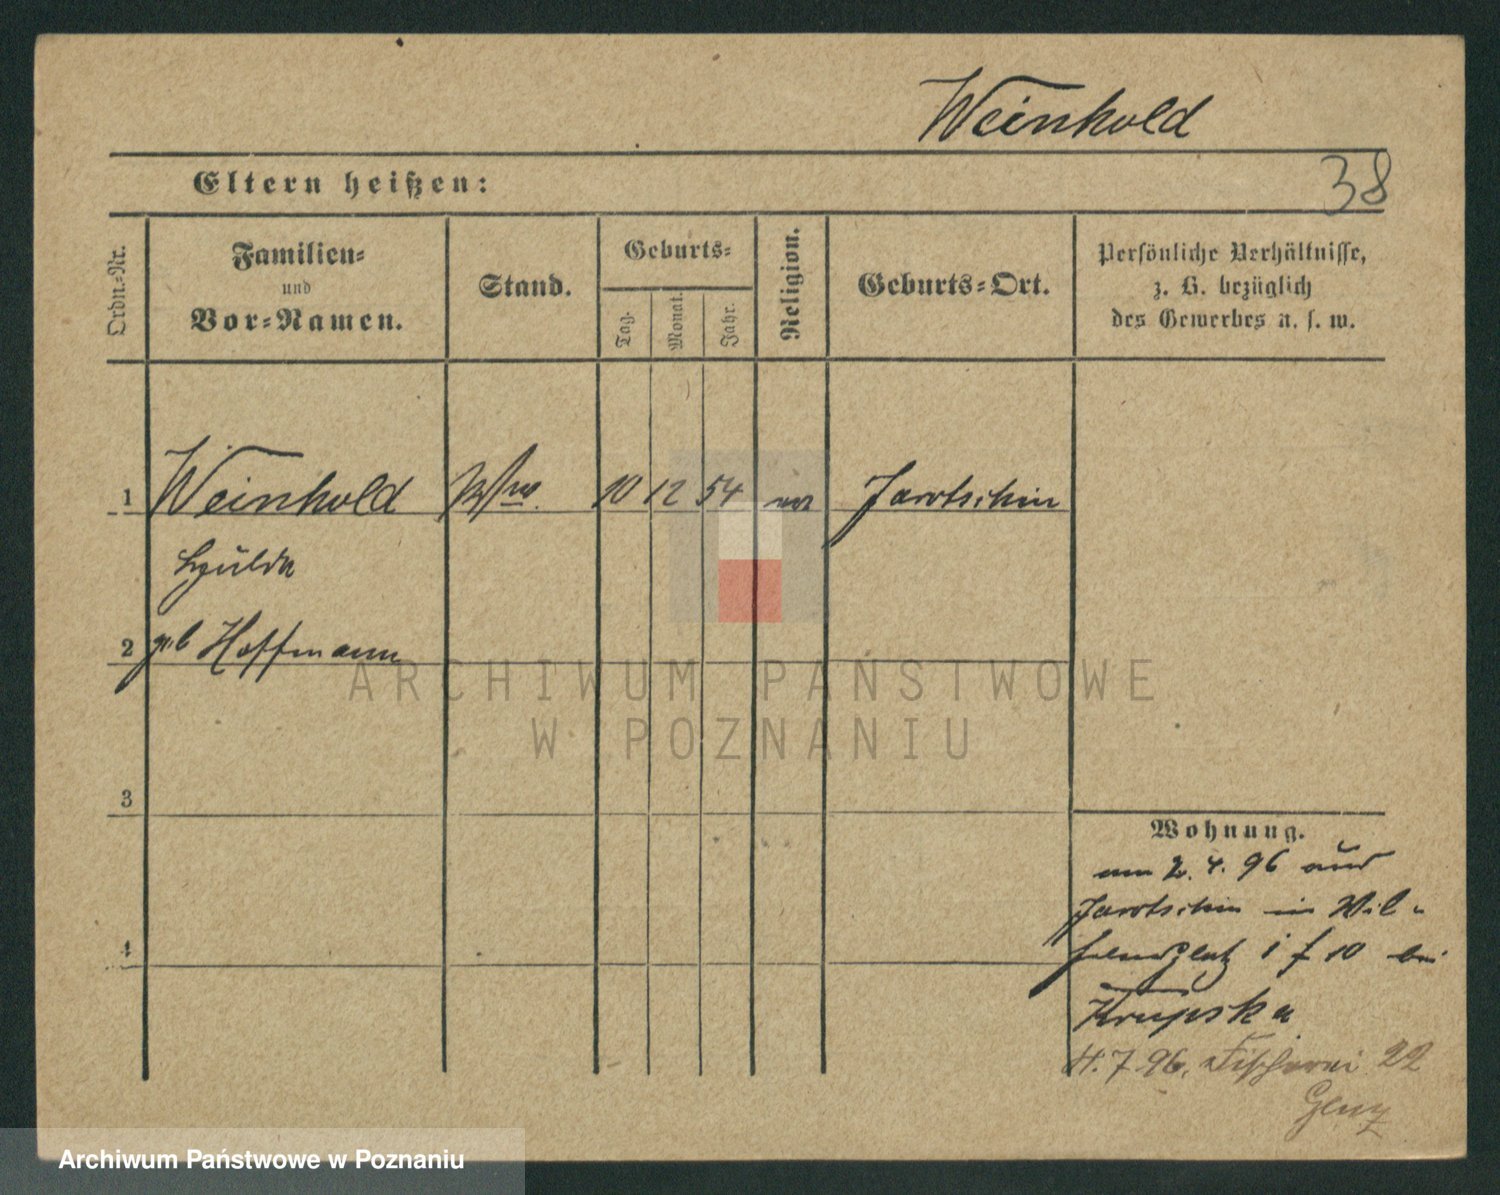 Weinhold
38
Eltern heißen:
Ordn.-Nr.
Familien-
und
Vor-Namen.
Stand.
Geburts-
Tag.
Monat.
Jahr.
Religion.
Geburts-Ort.
Persönliche Verhältnisse,
z. B. bezüglich
des Gewerbes u. s. w.
1 Weinhold Ww. 10 12 54 Jarotschin
Hulda
2 geb Hoffmann
ARCHIWUM PAŃSTWOWE
W POZNANIU
3
Wohnung.
am 2.4.96 aus
Jarotschin in Wil-
4
helmsplatz 10 bei
Krupska
4.7.96. Fischerei 22
Archiwum Państwowe w Poznaniu